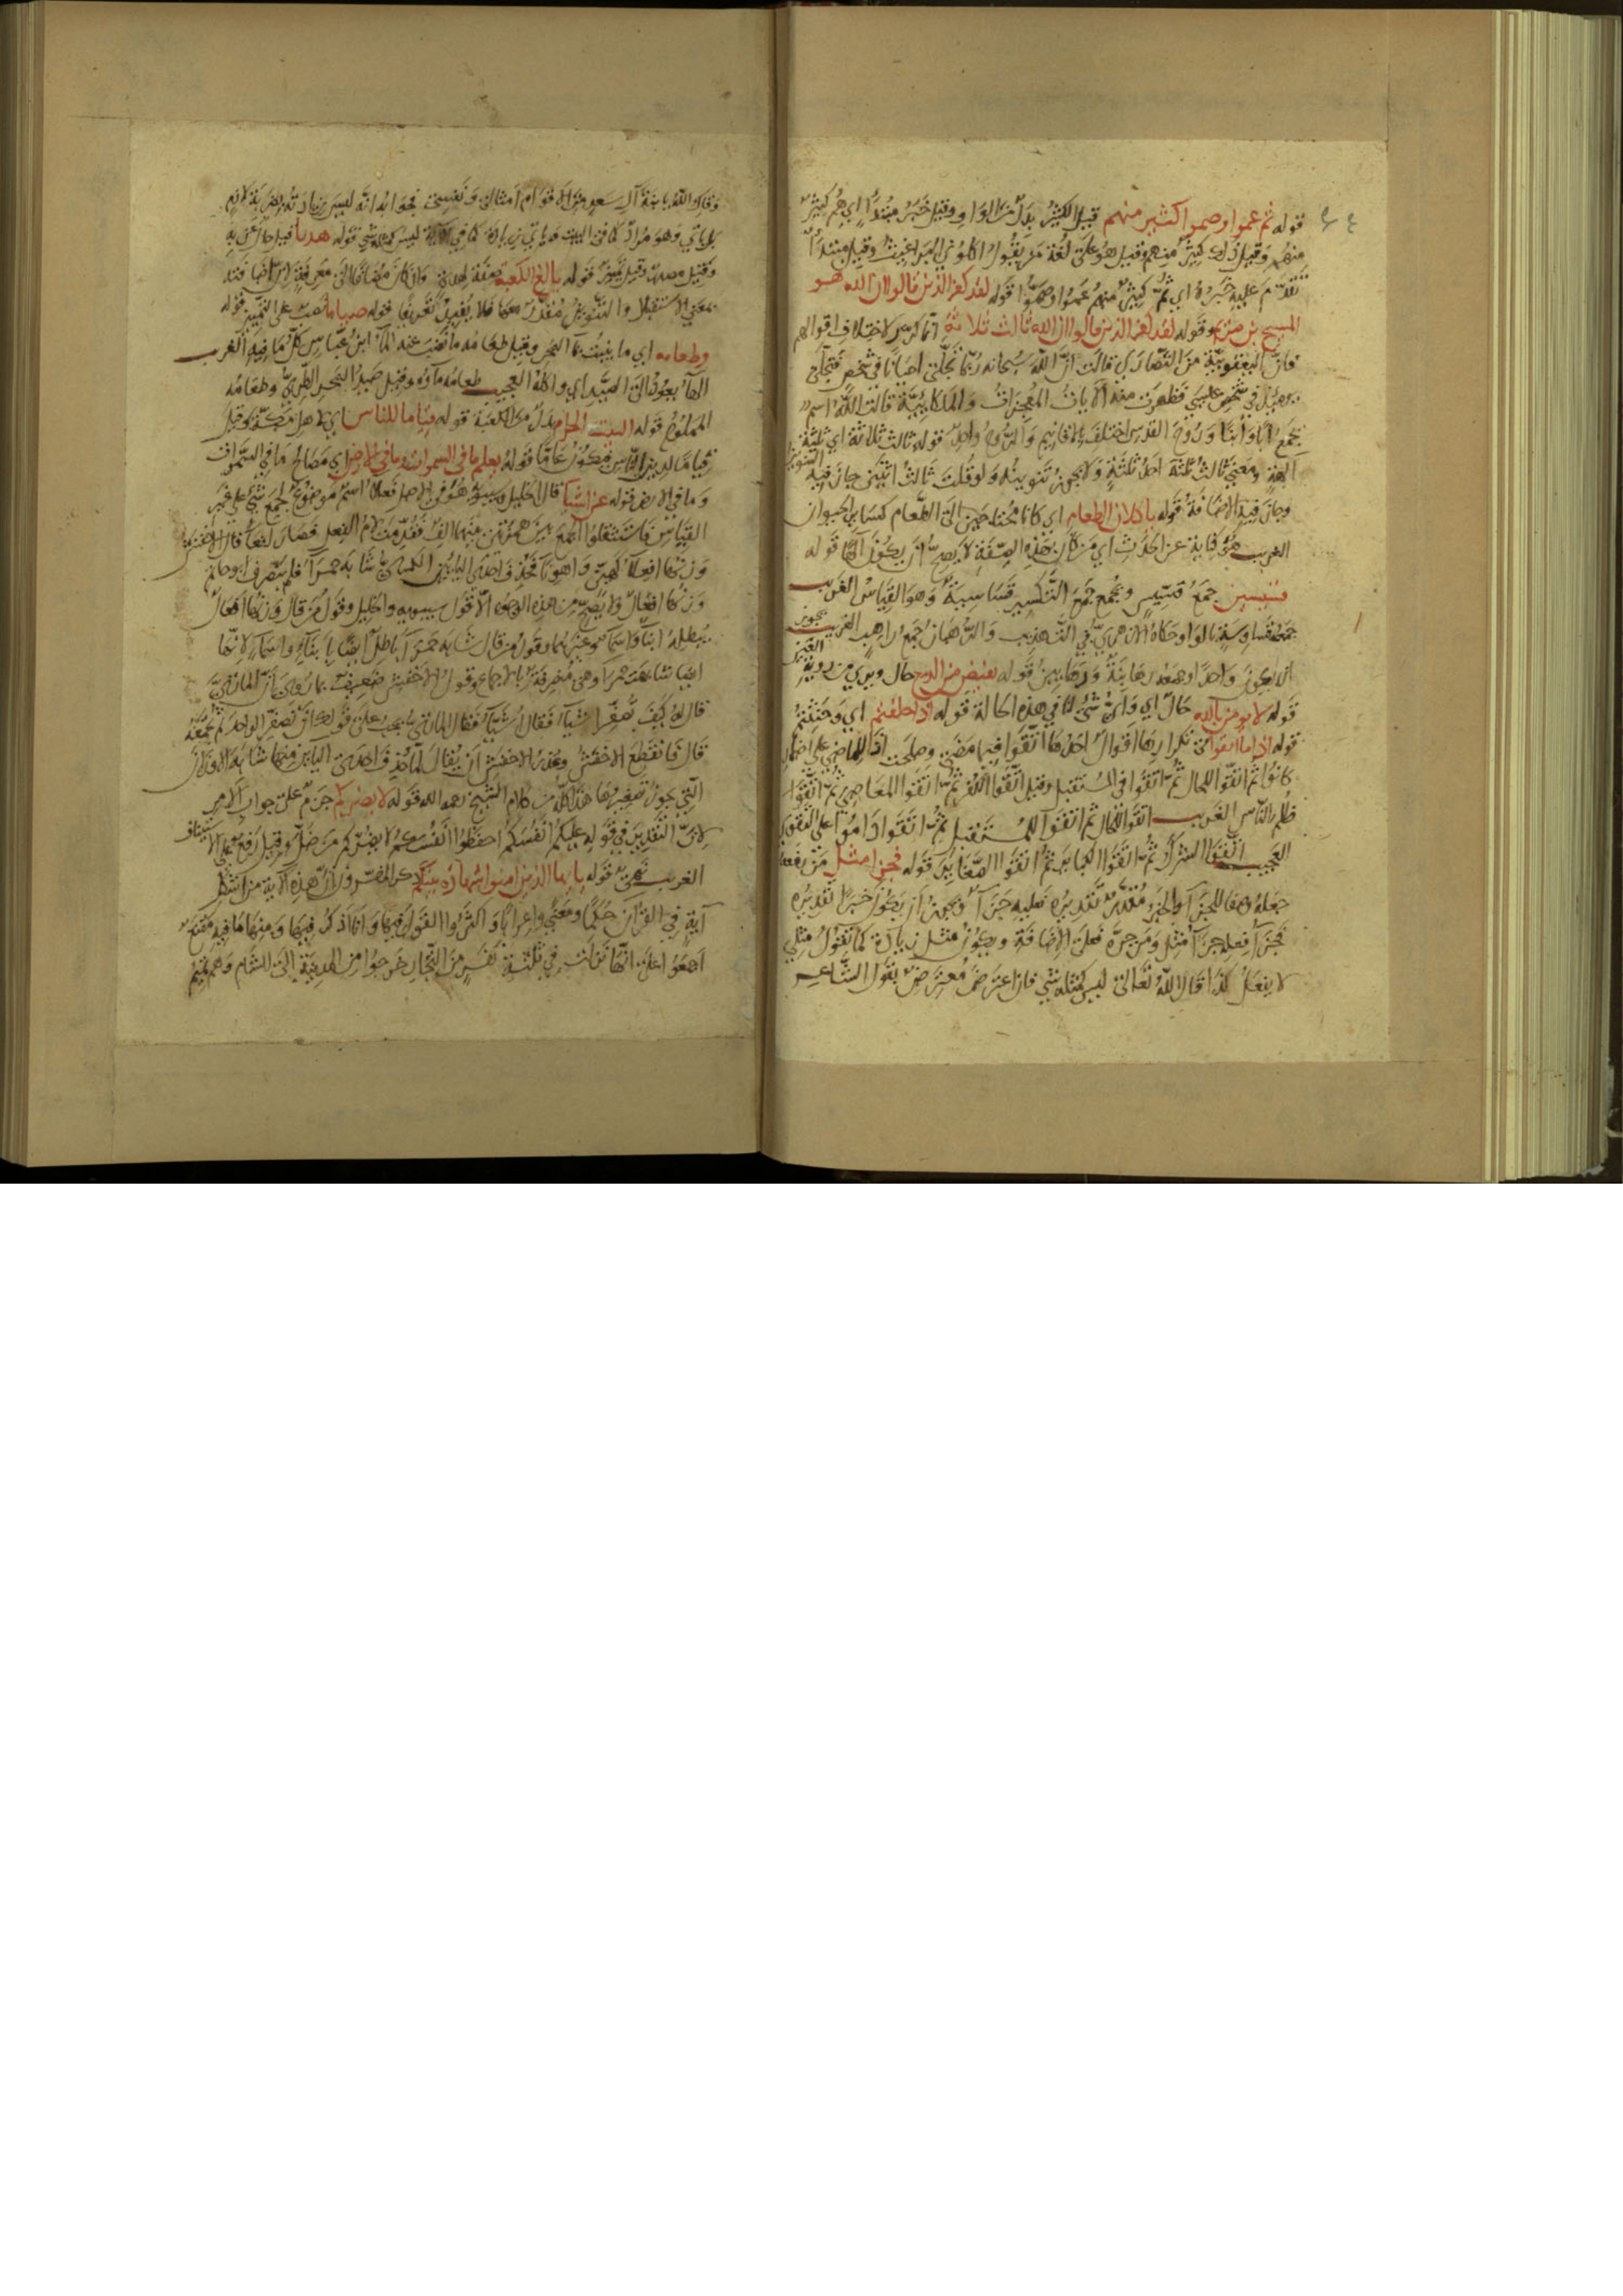 قوله ثم عموا وصموا كثير منهم قيل الكثير بدل من الواو وقيل خبر مبتدأ اي هم كثير
منهم وقيل ذلك كثير منهم وقيل هو على لغة من يقول اكلوني البراغيث وقيل مبتدأ
تقدم عليه خبره اي ثم كثير منهم عموا وصموا قوله لقد كفر الذين قالوا ان الله هو
المسيح بن مريم وقوله لقد كفر الذين قالوا ان الله ثالث ثلاثة انما كرر لاختلاف اقوالهم
فان اليعقوبية من النصارى قالت ان الله سبحانه ربما تجلى احيانا في شخص فتجلى
يومئذ في شخص عيسى فظهرت منه الآيات المعجزات والملكائية قالت الله اسم
يجمع أبا وأبنا وروح القدس اختلف الاقانيم والروح واحد قوله ثالث ثلاثة اي ثلثة
آلهة ومعنى ثالث ثلثة احد ثلثة ولا يجوز تنوينه ولو قلت ثالث اثنين جاز فيه التنوين
وجاز فيه الاضافة قوله ياكلان الطعام اي كانا محتاجين الى الطعام كساير الحيوان
الغريب هو كناية عن الحدث اي من كان بهذه الصفة لا يصح أن يكون الها قوله
قسيسين جمع قسيس وجمع جمع التكسير قساسبة وهو القياس الغريب
جمعه قساوسة بالواو حكاه الازهري في التهذيب والرهبان جمع راهب الغريب يجوز
ان يكون واحدا وجمعه رهابنة ورهابين قوله تفيض من الدمع حال وترى من رؤية العين
قوله لا نؤمن بالله حال اي وايّ شئ لنا في هذه الحالة قوله اذا حلفتم اي وحنثتم
قوله اذا ما اتقوا في تكرارها اقوال احدها اتقوا فيما مضى وصلحت اذا للماضي على اضمار
كانوا ثم اتقوا للحال ثم اتقوا في المستقبل وقيل اتقوا الكفر ثم اتقوا المعاصي ثم اتقوا
ظلم الناس الغريب اتقوا للحال ثم اتقوا للمستقبل ثم اتقوا داموا على التقوى
العجيب اتقوا الشرك ثم اتقوا الكبائر ثم اتقوا الصغائر قوله فجزاء مثل من رفعه
جعله وصفا للجزاء والخبر مقدر تقديره فعليه جزاء ويجوز أن يكون خبرا تقديره
فجزاء فعله جزاء مثل ومن جره فعلى الاضافة ويكون مثل زيادة كما تقول مثلي
لا يفعل كذا قال الله تعالى ليس كمثله شي فان اعترض معترض بقول الشاعر
وقاك الله يا بنة آل سعد من الاقوام امثالي ونفسي فجوابه انه ليس بزيادته
ياتي وهو مراد كما في البيت وياتي زيادة كما في الآية ليس كمثله شي قوله هديا قيل حال من به
وقيل مصدر وقيل تمييز قوله بالغ الكعبة صفة لهدي وان كان مضافا الى معرفة
بمعنى الاستقبال والتنوين مقدر معها فلا يفيد تعريفا قوله صياما نصب على التمييز قوله
وطعامه اي ما ينبت بماء البحر وقيل طعامه ما نضب عنه الماء ابن عباس كل ما فيه الغريب
الهاء يعود الى الصيد اي واكله العجيب طعامه ماؤه وقيل صيد البحر الطري وطعامه
المملوح قوله البيت الحرام بدل من الكعبة قوله قياما للناس اي لاهل مكة وقيل
قياما لدين الناس فيكون عاما قوله يعلم ما في السموات وما في الارض اي مصالح ما في السموات
وما في الارض قوله عن اشيا قال الخليل وسيبويه هو في الاصل فعلاء اسم موضوع لجمع شي على غير
القياس فاستثقلوا اجتماع همزتين بينهما الف فقدمت لام الفعل فصار لفعاء قال الاخفش
وزنها افعلاء كهين واهوناء فحذف احدى اليائين الكسائي شابه حمراء فلم يصرف ابو حاتم
وزنها افعال ولا يصح من هذه الوجوه الا قول سيبويه والخليل وقول من قال وزنها افعال
يبطله ابناء واسماء وغيرهما وقول من قال شابه حمراء باطل ايضا بابناء واسماء لانهما
ايضا شابهت حمراء وهي مصرفة بالاجماع وقول الاخفش ضعيف بما روى أن المازني
قال له كيف تصغر اشياء فقال أشياء فقال المازني يجب على قولك أن تصغر الواحد ثم تجمعه
قال فانقطع الاخفش وعذر الاخفش أن يقال لما حذف احدى اليائين منها شابه الاوزان
التي يجوز تصغيرها هذا كله من كلام الشيخ رحمه الله قوله لا يضركم جزم على جواب الامر
لان التقدير في قوله عليكم انفسكم احفظوا انفسكم لا يضركم من ضل وقيل رفع على الاستيناف
الغريب نهي قوله يا ايها الذين امنوا شهادة بينكم ذكر المفسرون أن هذه الآية من اشكل
آية في القرآن حكما ومعنى واعرابا واكثروا القول فيها وانا اذكر فيها ومنها ما فيه مقنع
اجمعوا على انها نزلت في ثلثة نفر من التجار خرجوا من المدينة الى الشام وهم تميم